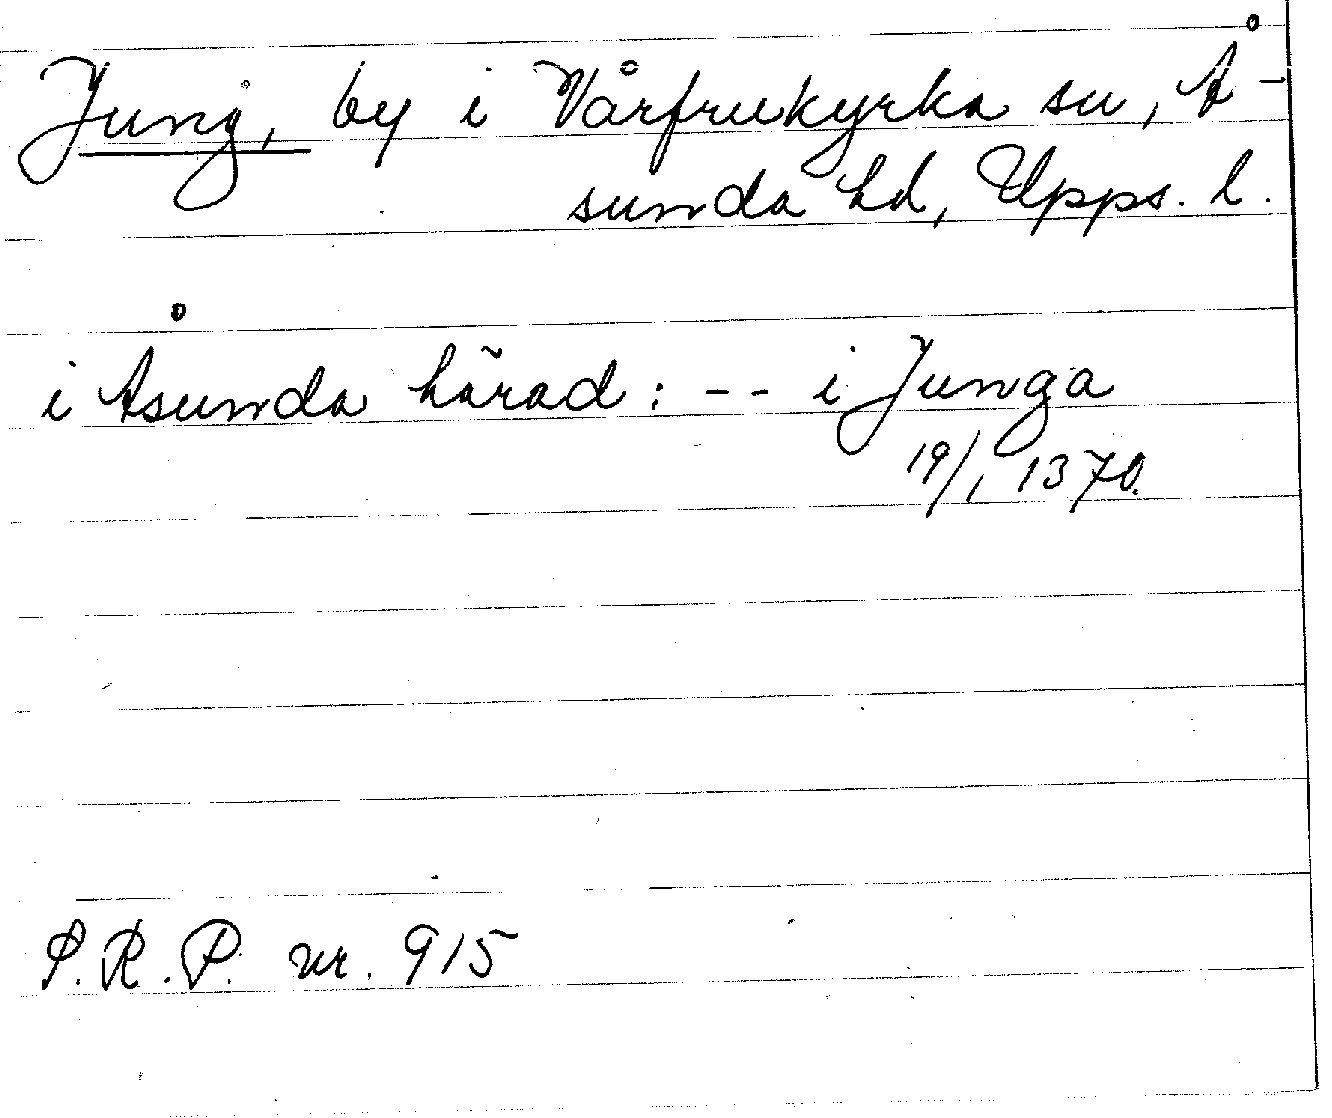 Jung, by i Vårfrukyrka sn, Å-
sunda hd, Upps. l.
i Åsunda härad: -- i Junga
19/1 1370.
S.R.P. nr. 915